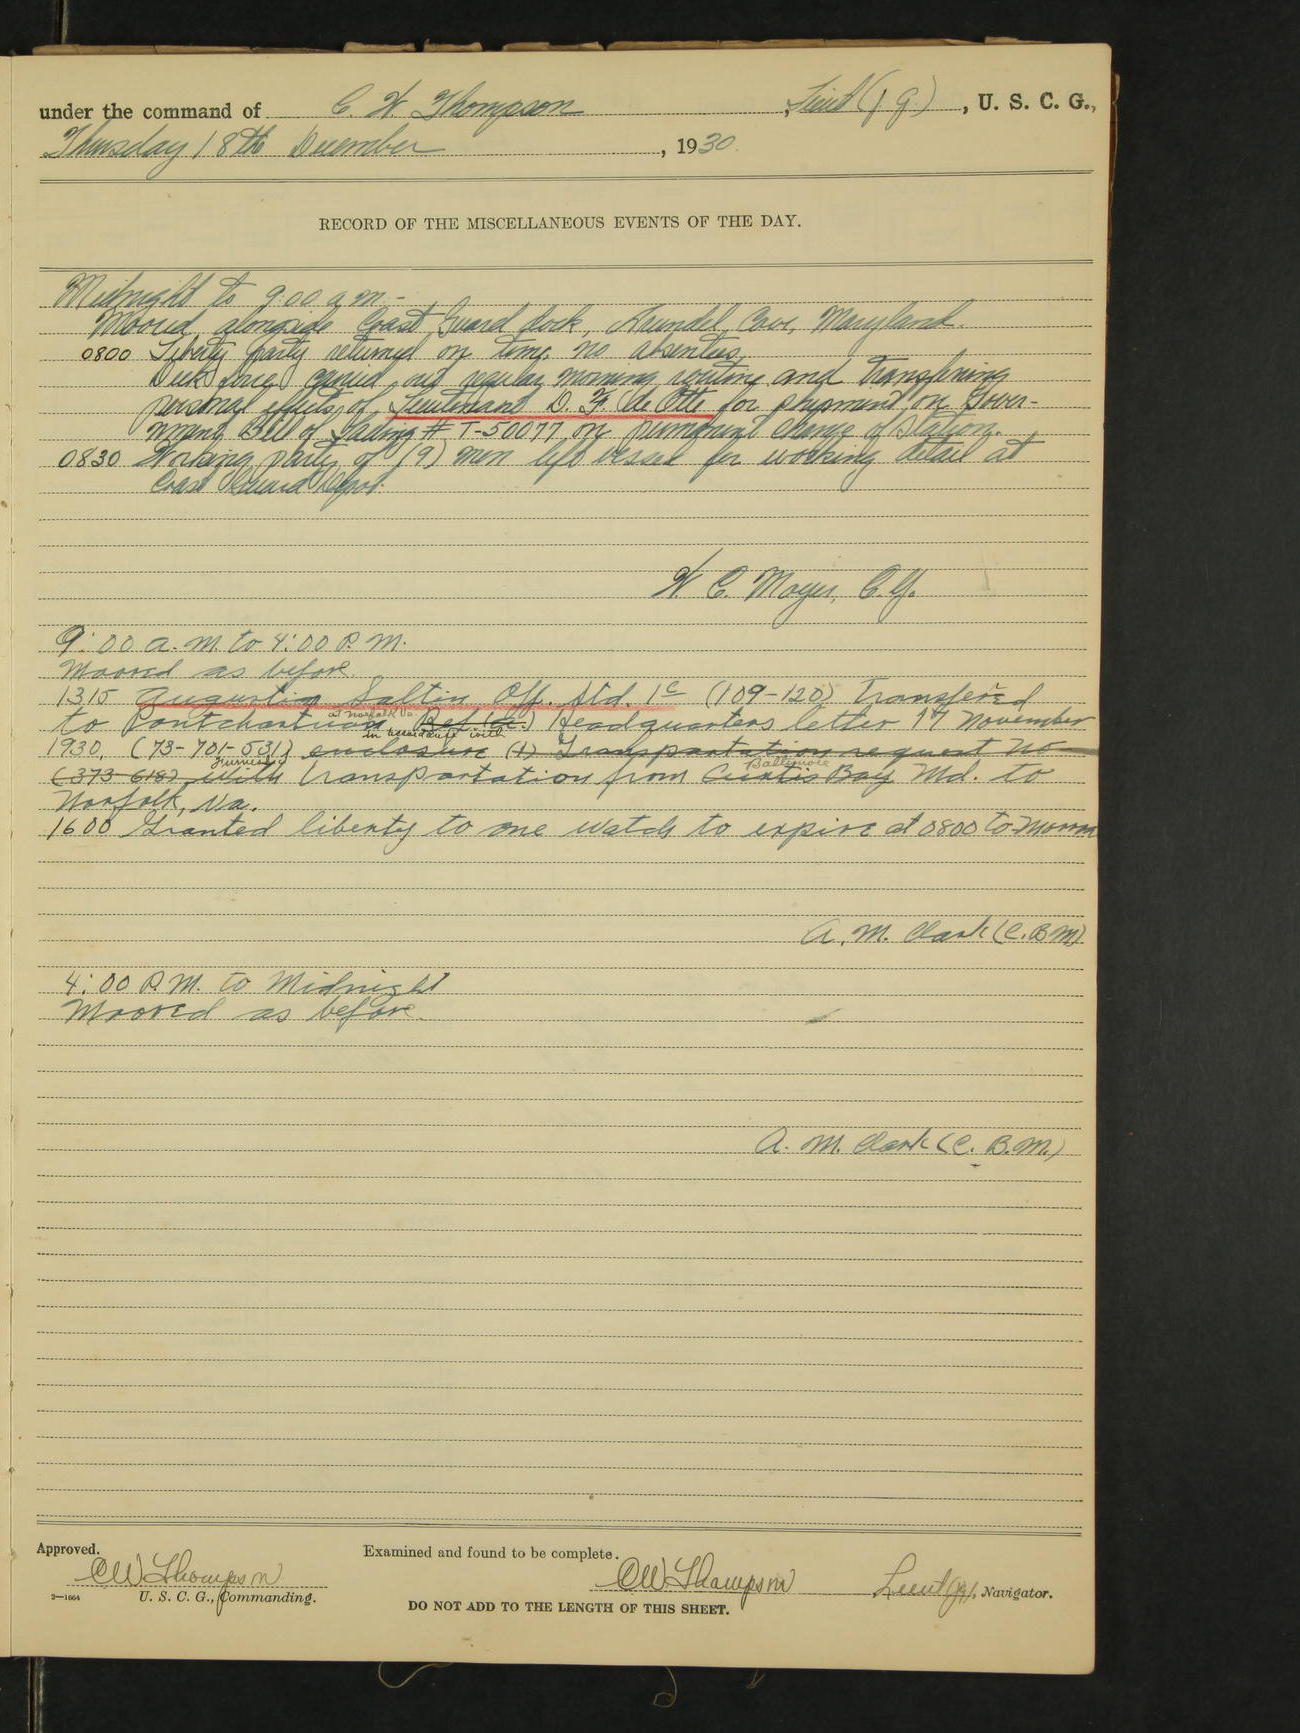 under the command of C. W. Thompson, Lieut (j g.), U. S. C. G.,
Thursday 18th December, 1930.
RECORD OF THE MISCELLANEOUS EVENTS OF THE DAY.
Midnight to 9:00 a.m.-
Moored alongside Coast Guard dock, Arundel Cove, Maryland.
0800 Liberty party returned on time, no absentees.
Deck force carried out regular morning routine and transfering
personal effects of Lieutenant D. F. de Otte for shipment on Gover-
nment Bill of Lading # T-50077 on permanent change of station.
0830 Working party of (9) men left vessel for working detail at
Coast Guard Depot.
W. C. Mayer, C.G.
9:00 a.m. to 4:00 P.M.
Moored as before.
1315 Augustin Saltin Off. Std. 1c (109-120) transfered
at Norfolk Va
to Pontchartrain Ref (a.) Headquarters letter 17 November
in accordance with
1930, (73-701-531) enclosure (1) Transportation request no
furnished
(373-618) with transportation from Curtis Bay Md. to
Baltimore
Norfolk, Va.
1600 Granted liberty to one watch to expire at 0800 to-morrow
A. M. Clark (C.B.M)
4:00 P.M. to Midnight
Moored as before.
A. M. Clark (C. B.M.)
Approved.
Examined and found to be complete.
CW Thompson
CW Thompson Lieut (jg), Navigator.
2—1664
U. S. C. G., Commanding.
DO NOT ADD TO THE LENGTH OF THIS SHEET.